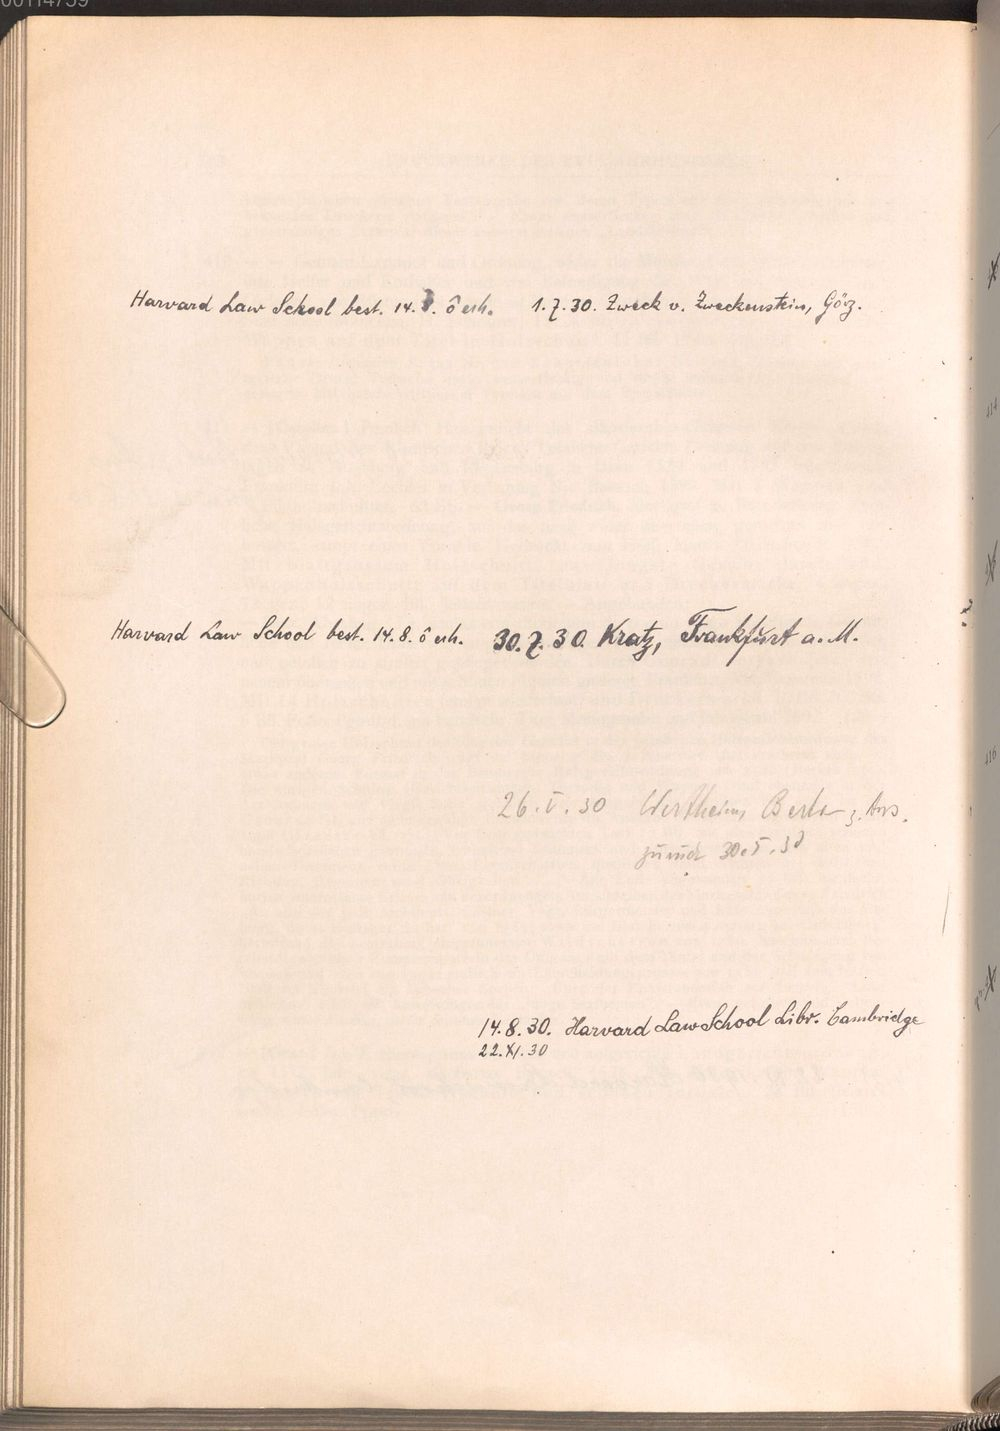 00114759
Harvard Law School best. 14.8. ô erh. 1.7.30. Zweck v. Zweckenstein, Görz.
414
Harvard Law School best. 14.8. ô erh. 30.7.30. Kratz, Frankfurt a. M.
416
26.V.30 Wertheim, Berlin z. Ans.
zurück 30.5.30
14.8.30. Harvard Law School Libr. Cambridge
22.XI.30